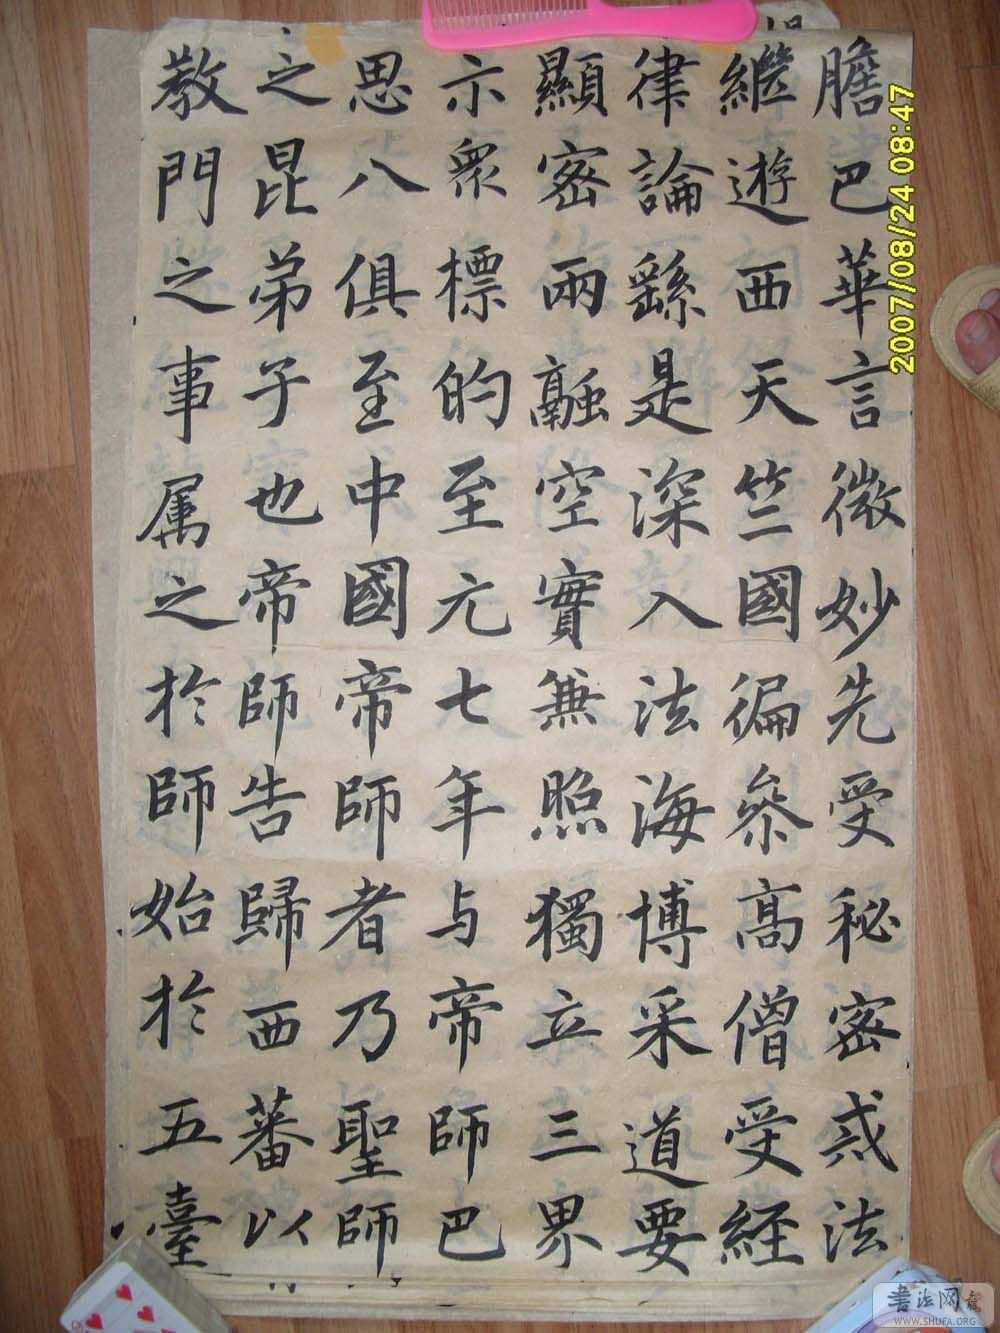 膽巴華言微妙先受秘密戒法
繼遊西天竺國徧參高僧受經
律論繇是深入法海博采道要
顯密兩融空實兼照獨立三界
示眾標的至元七年与帝師巴
思八俱至中國帝師者乃聖師
之昆弟子也帝師告歸西蕃以
教門之事属之於師始於五臺
2007/08/24 08:47
书法网
WWW.SHUFA.ORG